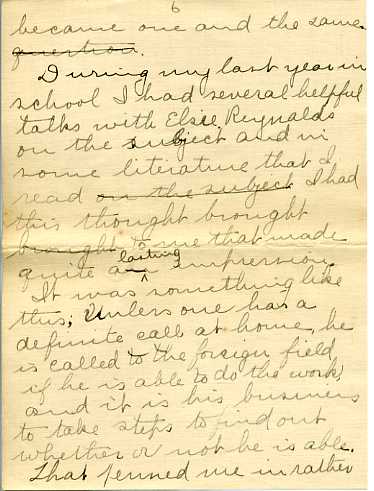 6
became one and the same
question.
During my last year in
school I had several helpful
talks with Elsie Reynolds
on the subject and in
some literature that I
read on the subject I had
this thought brought
brought to me that made
lasting
quite a impression.
It was something like
this; Unless one has a
definite call at home, he
is called to the foreign field
if he is able to do the work,
and it is his business
to take steps to find out
whether or not he is able.
That penned me in rather